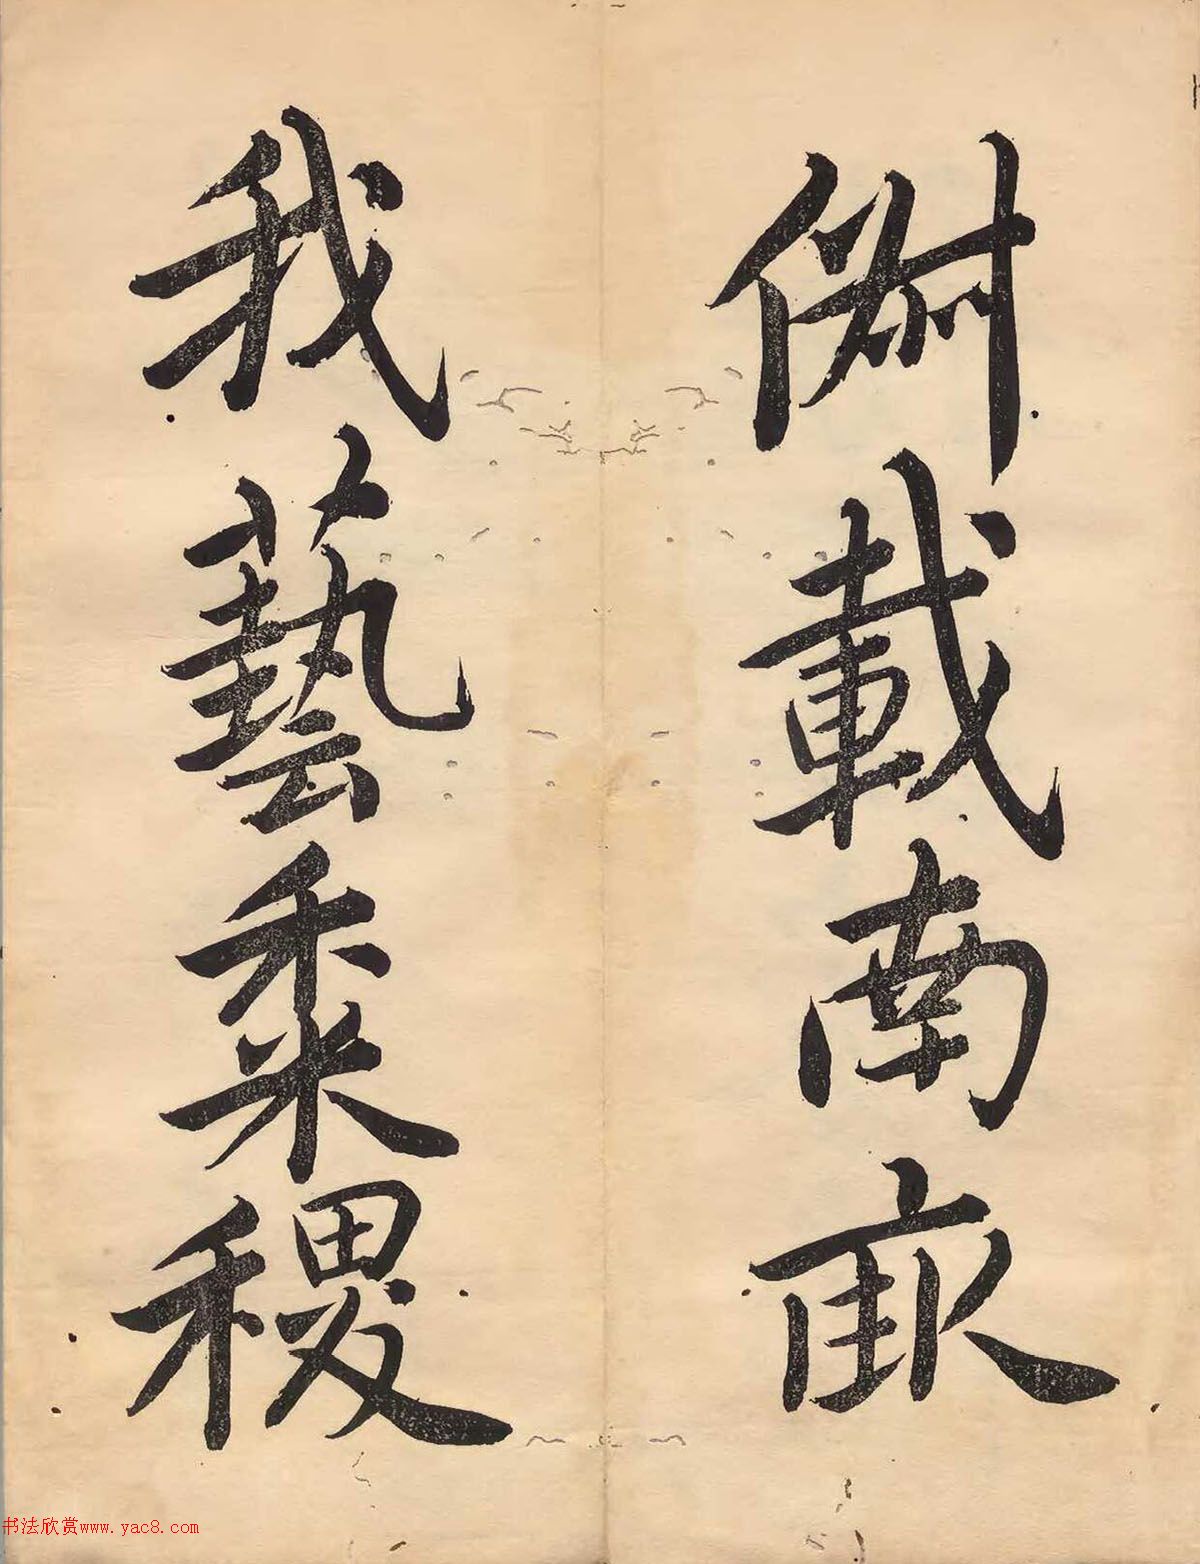 俶載南畝
我藝黍稷
书法欣赏www.yac8.com